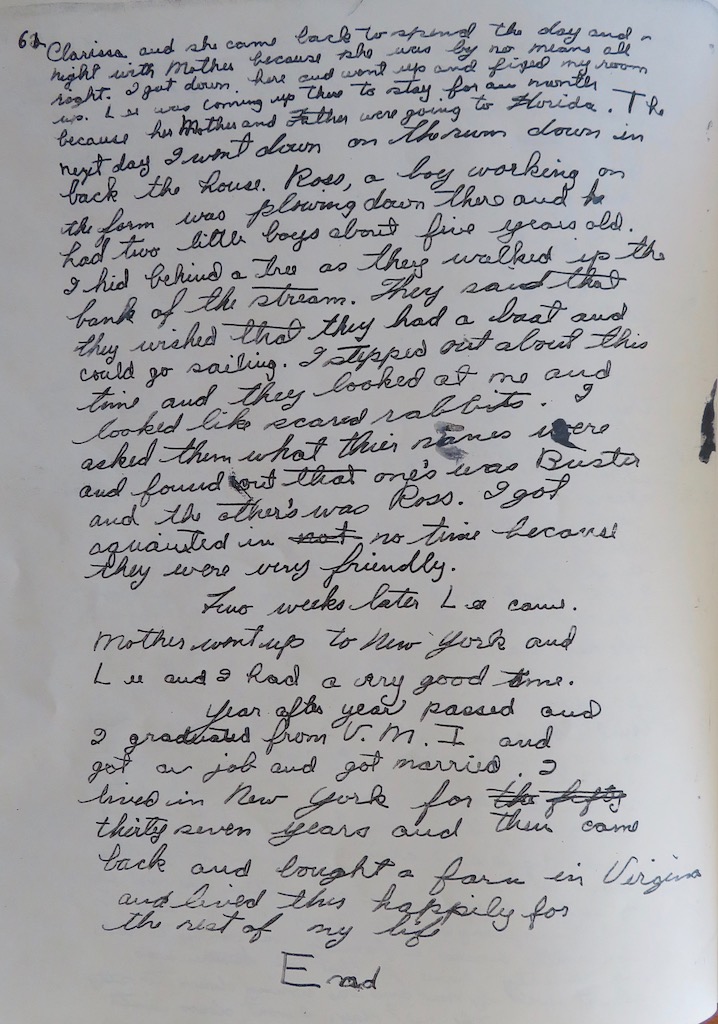 61
Clarissa and she came back to spend the day and
night with Mother because she was by no means all
right. I got down here and went up and fixed my room
up. Lee was coming up there to stay for a month
because his Mother and Father were going to Florida. The
next day I went down on the run down in
back the house. Ross, a boy working on
the farm was plowing down there and he
had two little boys about five years old.
I hid behind a tree as they walked up the
bank of the stream. They said that
they wished that they had a boat and
could go sailing. I stepped out about this
time and they looked at me and
looked like scared rabbits. I
asked them what their names were
and found out that one's was Buster
and the other's was Ross. I got
aquainted in not no time because
they were very friendly.
Two weeks later Lee came.
Mother went up to New York and
Lee and I had a very good time.
Year after year passed and
I graduated from V.M.I and
got a job and got married. I
lived in New York for the fifty
thirty seven years and then came
back and bought a farm in Virginia
and lived this happily for
the rest of my life
End